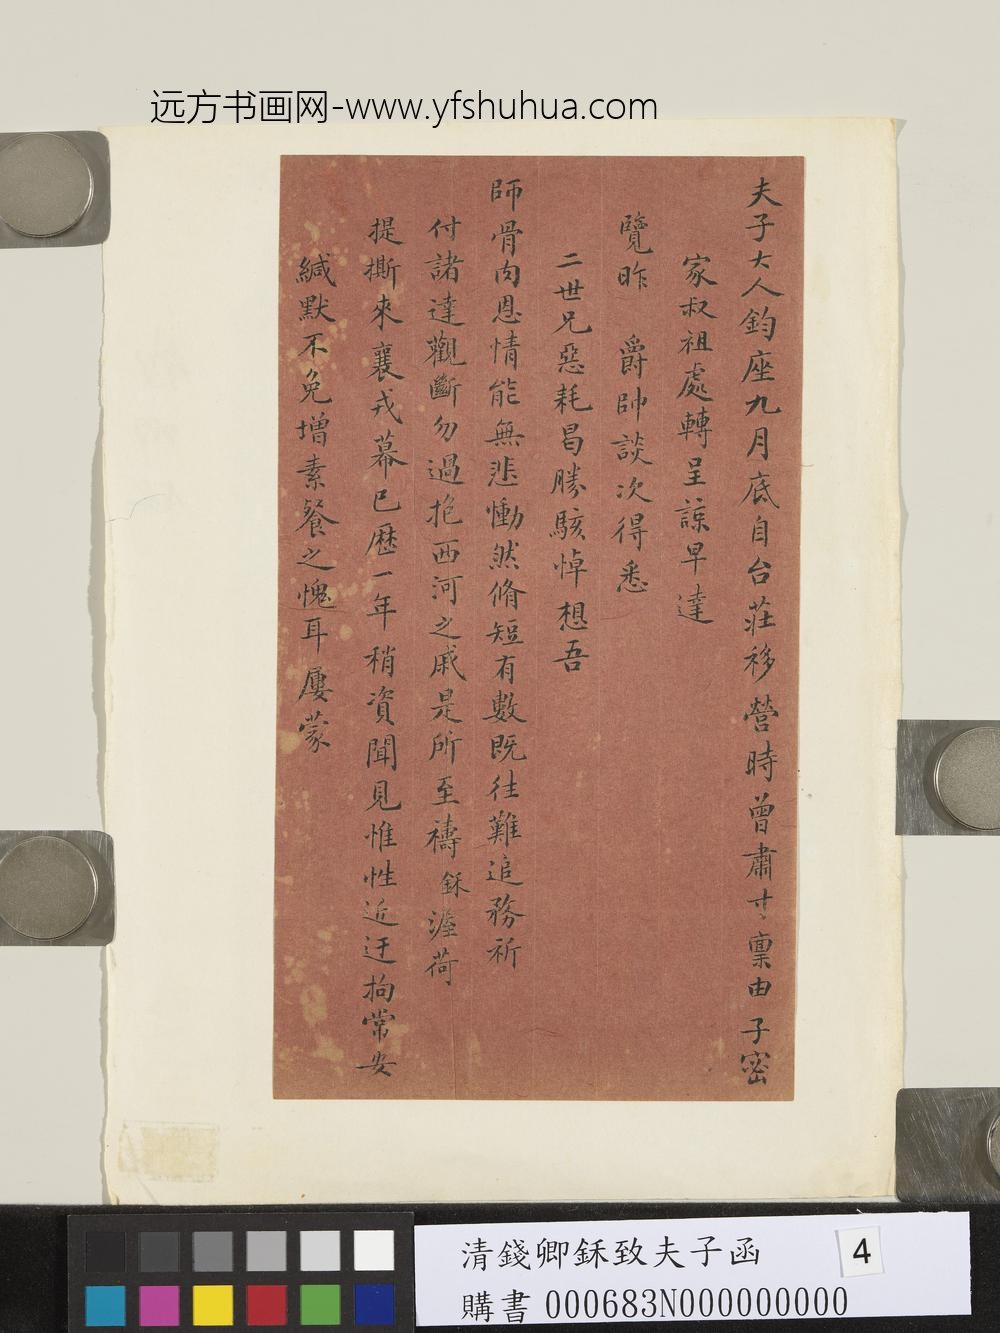 远方书画网-www.yfshuhua.com
夫子大人鈞座九月底自台莊移營時曾肅寸稟由子密
家叔祖處轉呈諒早達
覽昨 爵帥談次得悉
二世兄惡耗曷勝駭悼想吾
師骨肉恩情能無悲慟然脩短有數既往難追務祈
付諸達觀斷勿過抱西河之戚是所至禱銇渥荷
提撕來襄戎幕已歷一年稍資聞見惟性近迂拘常安
緘默不免增素餐之愧耳屢蒙
清錢卿銇致夫子函
4
購書 000683N000000000